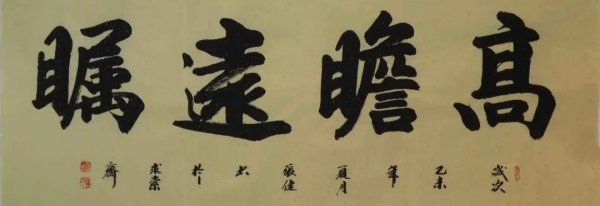 高瞻遠瞩
歲次乙未年夏月張健書於求索齋